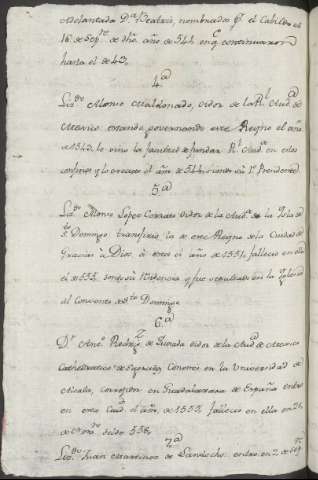 Adelantada Dª Beatris, nombrados pr. el Cabildo el
16 de Sepre. de dho. año de 541 en q continuaron
hasta el de 43.
4ª
Lizdo. Alonso Maldonado, oidor de la Rl. Audª de
Mexico estando governando este Reyno el año
de 1542 le vino la facultad de fundar Rl. Audª en estos
confines y lo executó el año de 544 siendo su 1º Presidente
5ª
Lizdo. Alonso Lopez Cerrato oidor de la Audª de la Isla de
Sto. Domingo transfirió la de este Reyno de la Ciudad de
Gracias à Dios, à esta el año de 1551, falleció en ella
el de 555, su Residencia y fue sepultado en la Yglesia
del Convento de Sto. Domingo
6ª
Dr. Anto. Rodrigz de Quesada oidor de la Audª de Mexico
Cathedratico de Canones en la Universidad de
Alcala, corregidor en Guadalaxara de España entró
en esta Ciud. el año, de 1555 falleció en ella en 28
de de 558,
7ª
Lizdo. Juan Martinez de Landecho: entró en 2 de Sepre